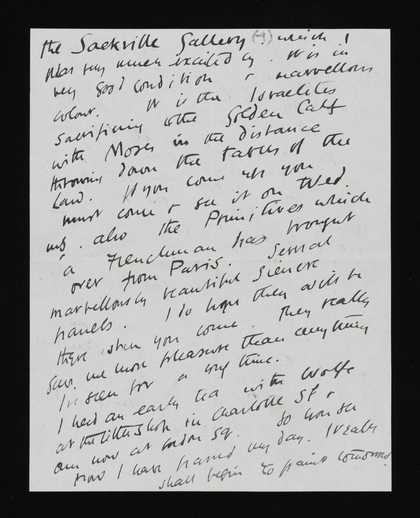 the Sackville Gallery (4) which I
was very much excited by. It is in
very good condition & marvellous
colour. It is the Israelites
sacrificing to the Golden Calf
with Moses in the distance
throwing down the tables of the
Law. If you come up you
must come & see it on Wed.
also the Primitives which
a Frenchman has brought
over from Paris. Several
marvellously beautiful Sienese
panels. I do hope they will be
there when you come. They really
gave me more pleasure than anything
I've seen for a long time.
I had an early tea with Wolfe
at the little shop in Charlotte St &
am now at Gordon Sq. So you see
how I have passed my day. I really
shall begin to paint tomorrow.